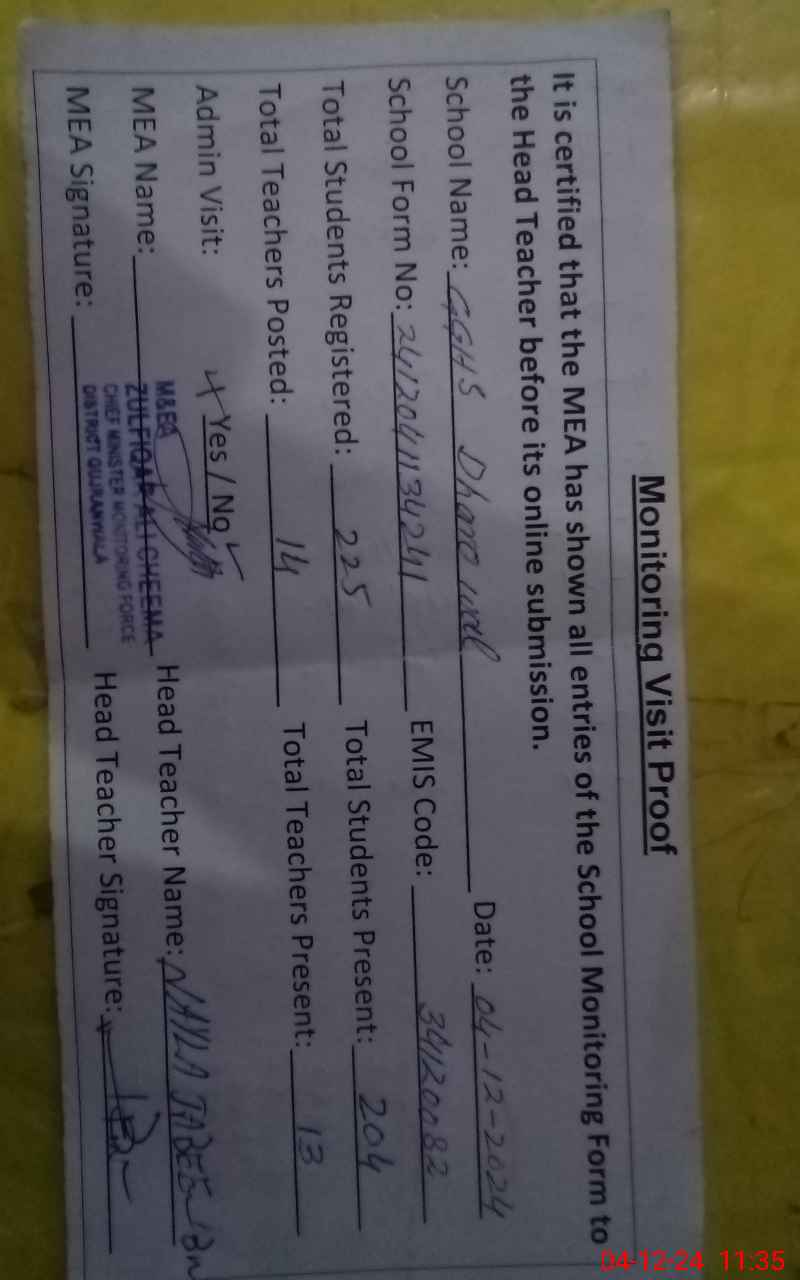 Monitoring Visit Proof
It is certified that the MEA has shown all entries of the School Monitoring Form to
the Head Teacher before its online submission.
School Name: GGHS Date: 04-12-2024
School Form No: EMIS Code: 34120082
Total Students Registered: 225 Total Students Present: 204
Total Teachers Posted: 14 Total Teachers Present: 13
Admin Visit: Yes / No
MEA Name: Head Teacher Name: NAYLA
MEA Signature: Head Teacher Signature:
M&EA
ZULFIQAR ALI CHEEMA
CHIEF MINISTER MONITORING FORCE
DISTRICT GUJRANWALA
04-12-24 11:35